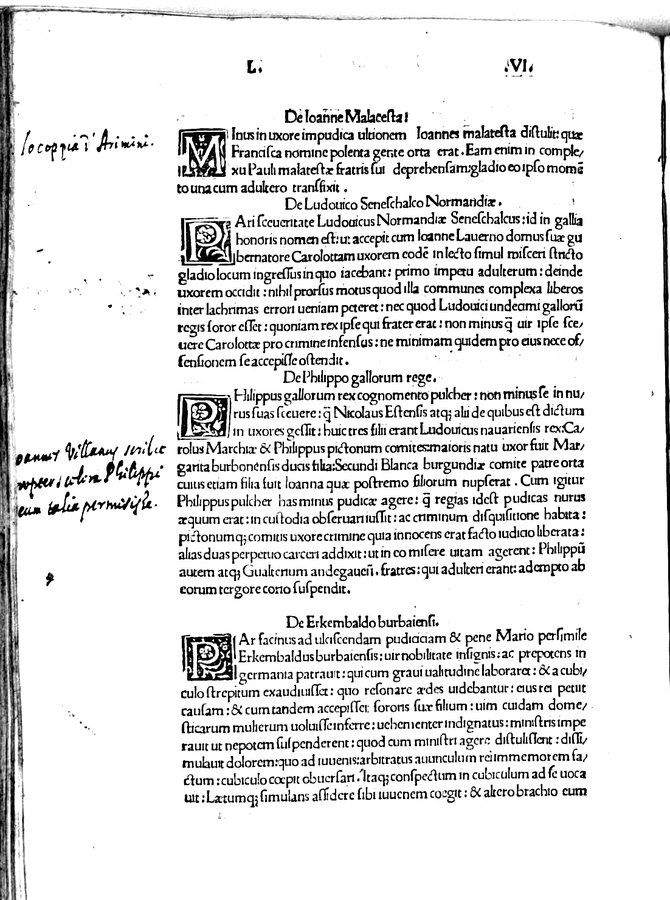 L. .VI.
De Ioāne Malatesta:
MInus in uxore impudica ultionem Ioannes malatesta distulit: quæ
Francisca nomine polenta gente orta erat. Eam enim in comple/
xu Pauli malatestæ fratris sui deprehensam: gladio eo ipso momē
to una cum adultero transfixit.
De Ludouico Seneschalco Normandiæ.
PAri sceueritate Ludouicus Normandiæ Seneschalcus: id in gallia
honoris nomen est: ut accepit cum Ioanne Lauerno domus suæ gu
bernatore Carolottam uxorem eodē in lecto simul misceri stricto
gladio locum ingressus in quo iacebant: primo impetu adulterum: deinde
uxorem occidit: nihil prorsus motus quod illa communes complexa liberos
inter lachrimas errori ueniam peteret: nec quod Ludouici undecimi gallorū
regis soror esset: quoniam rex ipse qui frater erat: non minus q̄ uir ipse sce/
uere Carolottæ pro crimine infensus: ne minimam quidem pro eius nece of/
fensionem se accepisse ostendit.
De Philippo gallorum rege.
PHilippus gallorum rex cognomento pulcher: non minus se in nu/
rus suas sceuere: q̄ Nicolaus Estensis atq; alii de quibus est dictum
in uxores gessit: huic tres filii erant Ludouicus nauariensis rex: Ca/
rolus Marchiæ & Philippus pictonum comites: maioris natu uxor fuit Mar/
garita burbonensis ducis filia: Secundi Blanca burgundiæ comite patre orta
cuius etiam filia fuit Ioanna quæ postremo filiorum nupserat. Cum igitur
Philippus pulcher has minus pudicæ agere: q̄ regias idest pudicas nurus
æquum erat: in custodia obseruari iussit: ac criminum disquisitione habita:
pictonumq; comitis uxore crimine quia innocens erat facto iudicio liberata:
alias duas perpetuo carceri addixit: ut in eo misere uitam agerent: Philippū
autem atq; Gualterium andegauen̄. fratres: qui adulteri erant: adempto ab
eorum tergore corio suspendit.
De Erkembaldo burbaiensi.
PAr facinus ad ulciscendam pudiciciam & pene Mario persimile
Erkembaldus burbaiensis: uir nobilitate insignis: ac prepotens in
germania patrauit: qui cum graui ualitudine laboraret: & a cubi/
culo strepitum exaudiuisset: quo resonare ædes uidebantur: eius rei petiit
causam: & cum tandem accepisset sororis suæ filium: uim cuidam dome/
sticarum mulierum uoluisse inferre: uehementer indignatus: ministris impe
rauit ut nepotem suspenderent: quod cum ministri agere distulissent: dissi/
mulauit dolorem: quo ad iuuenis: arbitratus auunculum rei immemorem fa/
ctum: cubiculo cœpit obuersari. Itaq; conspectum in cubiculum ad se uoca
uit: Lætumq; simulans assidere sibi iuuenem coegit: & altero brachio eum
Iocoppia d'Arimini.
Villanus scribit
Philippi
eum talia permisisse.